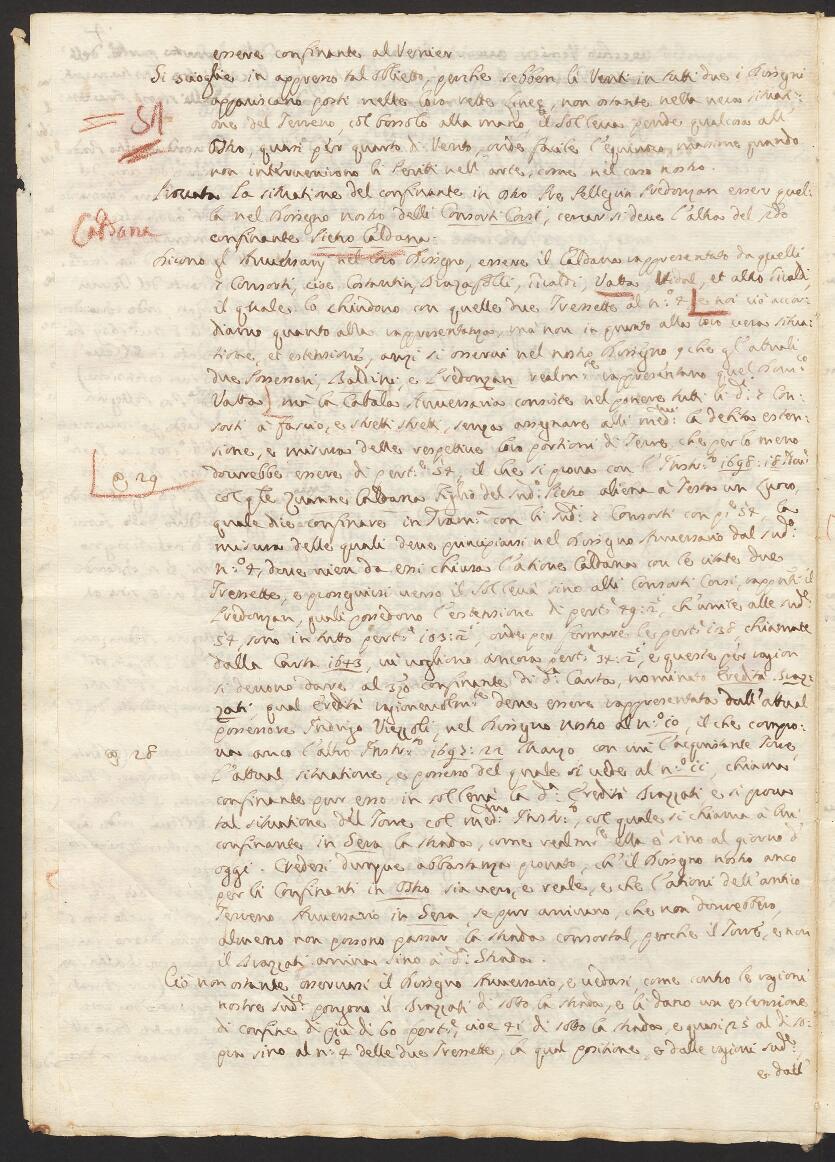 essere confinante al Vernier
Si scioglie in appresso tal obbietto, perche sebben li Venti in tutti due i Dissegni
appariscano posti nelle loro rette linee, non ostante nella vera situati=
one del Terreno, col bossolo alla mano, il Sol leva pende qualcosa all'
= 51
Ostro, quasi per quarto di Vento, onde facile l'equivoco, massime quando
non intervenirono li Periti nell'arte, come nel caso nostro.
Provata la situatione del confinante in ostro Pre Pellegrin Predonzan esser quel=
la nel Dissegno nostro delli Consorti Corsi, cercar si deve l'altra del 2do
Caldana
confinante Pietro Caldana.
Dicono gl'Avversarij nel loro Dissegno, essere il Caldana rappresentato da quelli
7 Consorti, cioè Costantin, Brazzafolli, Rivaldi, Vatta, Vidal, et altro Rivaldi,
il quale lo chiudono con quelle due Tressette al n.o 4, e noi ciò accor=
diamo quanto alla rappresentanza, mà non in quanto alla loro vera situa=
tione, et estensione, anzi si osservi nel nostro Dissegno che gl'attuali
due Possessori, Baldini, e Predonzan realm.te rappresentano quel
Vatta, mà la Cabala Avversaria consiste nel ponere tutti li d.i 7 Con=
sorti à fascio, e stretti stretti, senza assegnare alli med.mi la debita esten=
sione, e misura delle respettive loro portioni di Terre, che per lo meno
dovrebbe essere di pert.e 54, il che si prova con l'Instr.to 1698: 18
@ 29
col qle Zuanne Caldana figlio del sud.o Pietro aliena à Testa un Luoco,
quale dice confinare in Tram.a con li sud.i 7 Consorti con p.e 54, la
misura delle quali deve principiarsi nel Dissegno Avversario dal sud.o
n.o 4, dove vien da essi chiusa l'atione Caldana con le citate due
Tressette, e proseguirsi verso il Sol leva sino alli Consorti Corsi, rapp.ti il
Predonzan, quali possedono l'estensione di pert.e 49:2, ch'unite alle sud.e
54, sono in tutto pert.e 103:2, onde per formare le pert.e 138, chiamate
dalla Carta 1643, vi vogliono ancora pert.e 34:2, e queste per ragion
si devono dare al 3zo confinante di d.a Carta, nominato Eredità Braz=
zati, qual Eredità ragionevolm.te deve essere rappresentata dall'attual
possessore Fedrigo Viezzoli, nel Dissegno nostro al n.o 10, il che compro=
@ 28
va anco l'altro Instr.to 1695: 22 Marzo con cui l'acquistante Torre,
l'attual situatione, e possesso del quale si vede al n.o 11, chiama
confinante pur esso in sol leva la d.a Eredità Brazzati, e si prova
tal situatione del Torre col med.mo Instr.to, col quale si chiama à lui
confinante in Sera la strada, come realm.te ella è sino al giorno d'
oggi. Credesi dunque abbastanza provato, ch'il Dissegno nostro anco
per li Confinanti in Ostro sia vero, e reale, e che l'ationi dell'antico
Terreno Avversario in Sera, se pur arrivano, che non dovrebbero,
almeno non possono passar la strada consortal, perche il Torre, e non
il Brazzati arriva sino à d.a Strada.
Ciò non ostante osservasi il Dissegno Avversario, e vedasi, come contro le ragioni
nostre sud.e pongono il Brazzati di sotto la strada, e li danno un estensione
di confine di più di 60 pert.e, cioè 41 di sotto la strada, e quasi 25 al di so=
pra sino al n.o 4 delle due Tressette, la qual positione, e dalle ragioni sud.e
e dall'